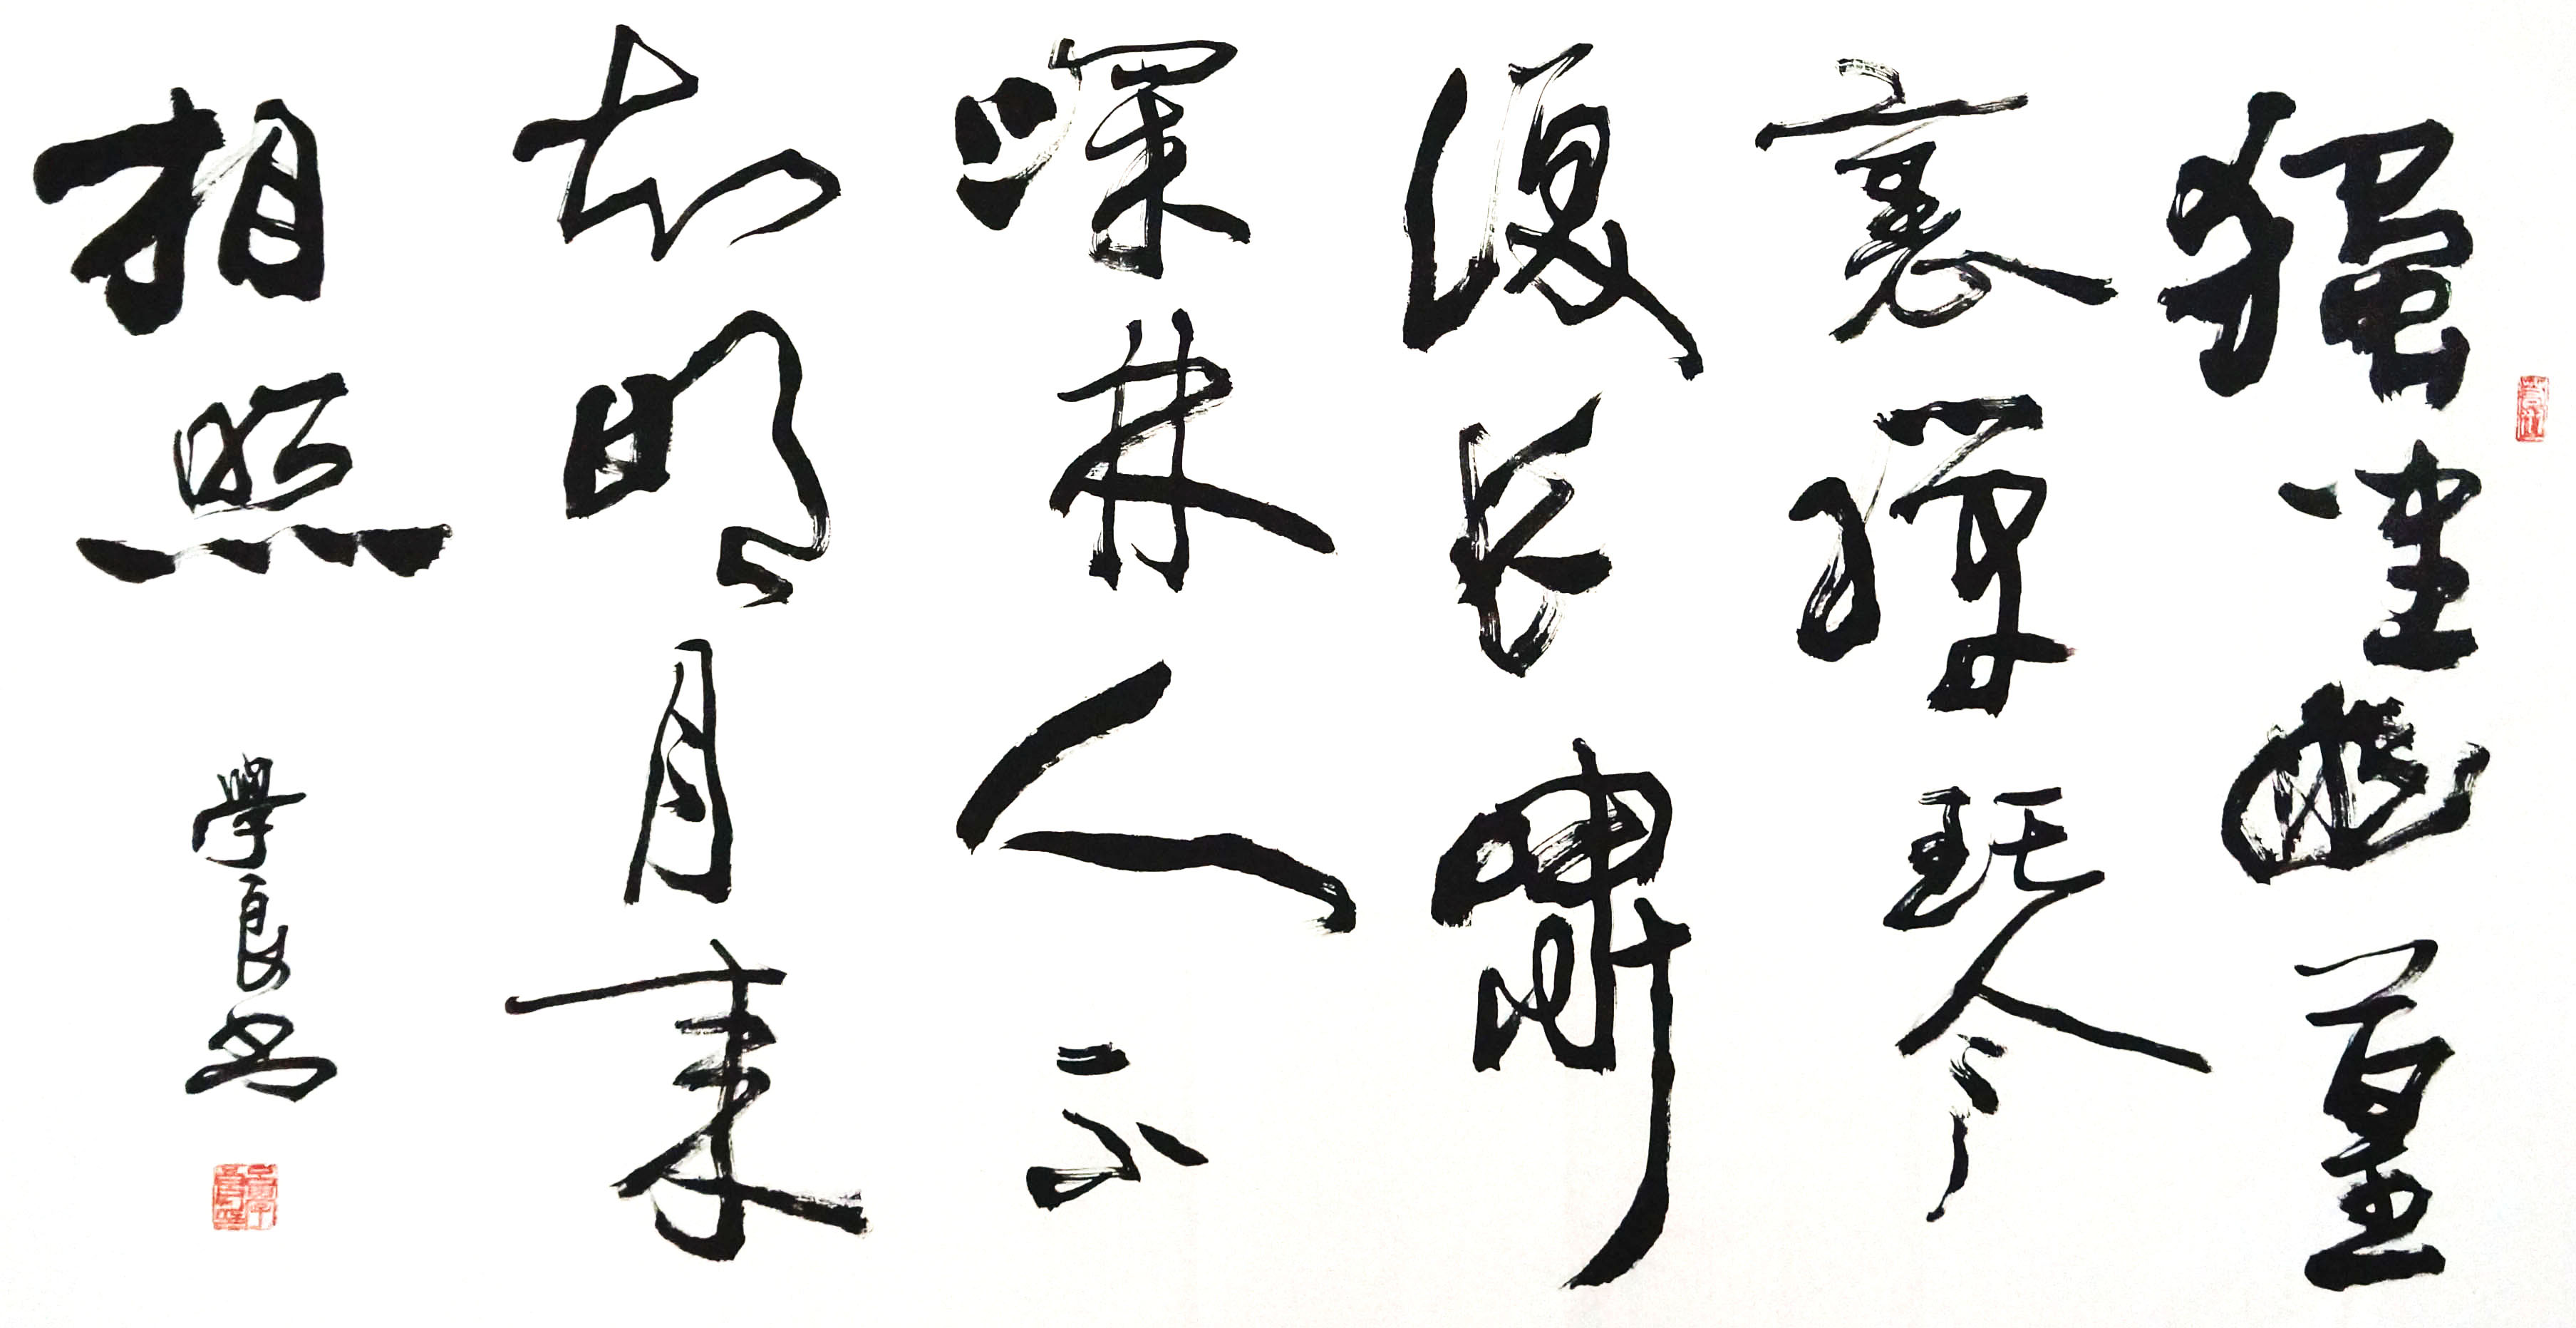 獨坐幽篁
裏彈琴
復長嘯
深林人不
知明月来
相照
學良书